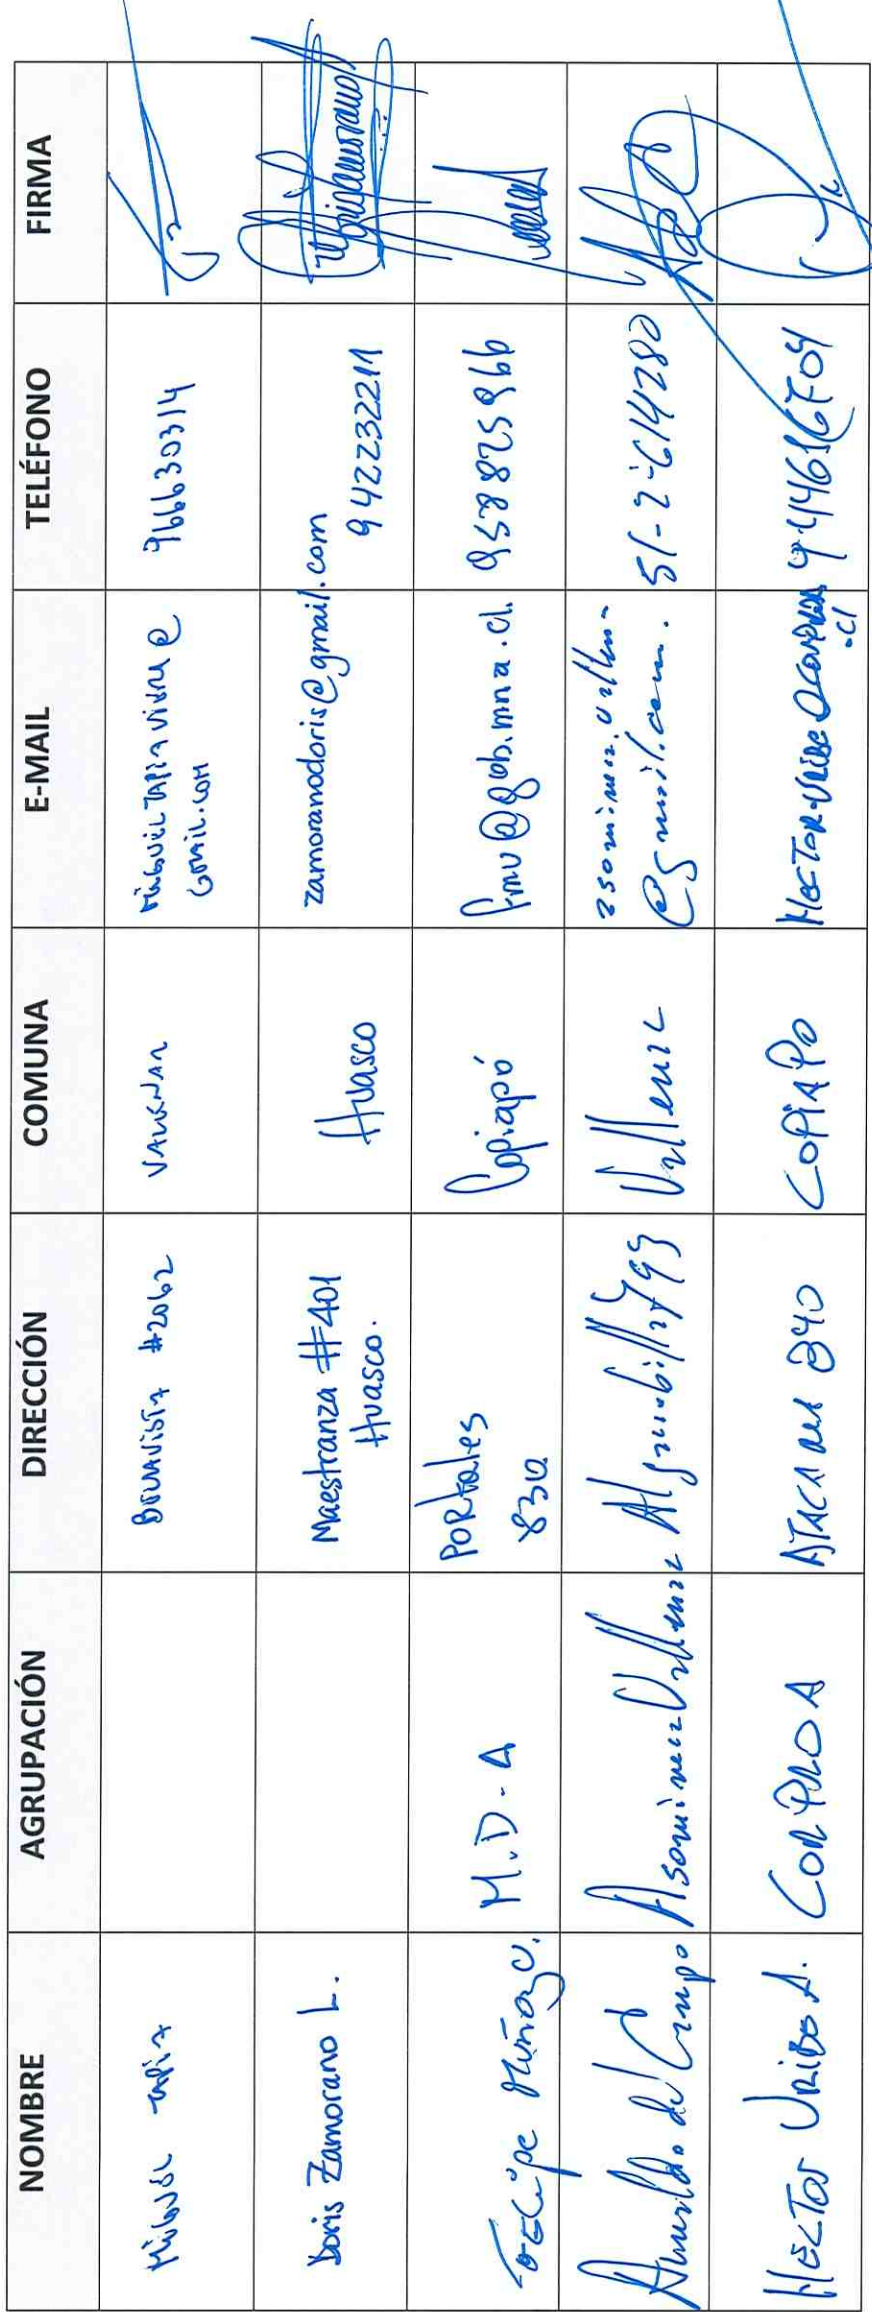 NOMBRE AGRUPACIÓN DIRECCIÓN COMUNA E-MAIL TELÉFONO FIRMA
MIGUEL TAPIA BUENAVISTA #2062 VALLENAR MIGUELTAPIAVIVAN@ 966630314
GMAIL.COM
Doris Zamorano L. Maestranza #401 Huasco zamoranodoris@gmail.com
Huasco. 942232211
FELIPE MUÑOZ U. M.D.A PORtales Copiapó fmu@gob.mna.cl. 958825966
830
Amarildo del Campo Asominera Vallenar Algarrobilla 793 Vallenar asominera.vallena 51-2-614280
@gmail.com.
HECTOR URIBE A. CORPROA ATACAMA 840 COPIAPO HECTOR.URIBE@CORPROA
.cl